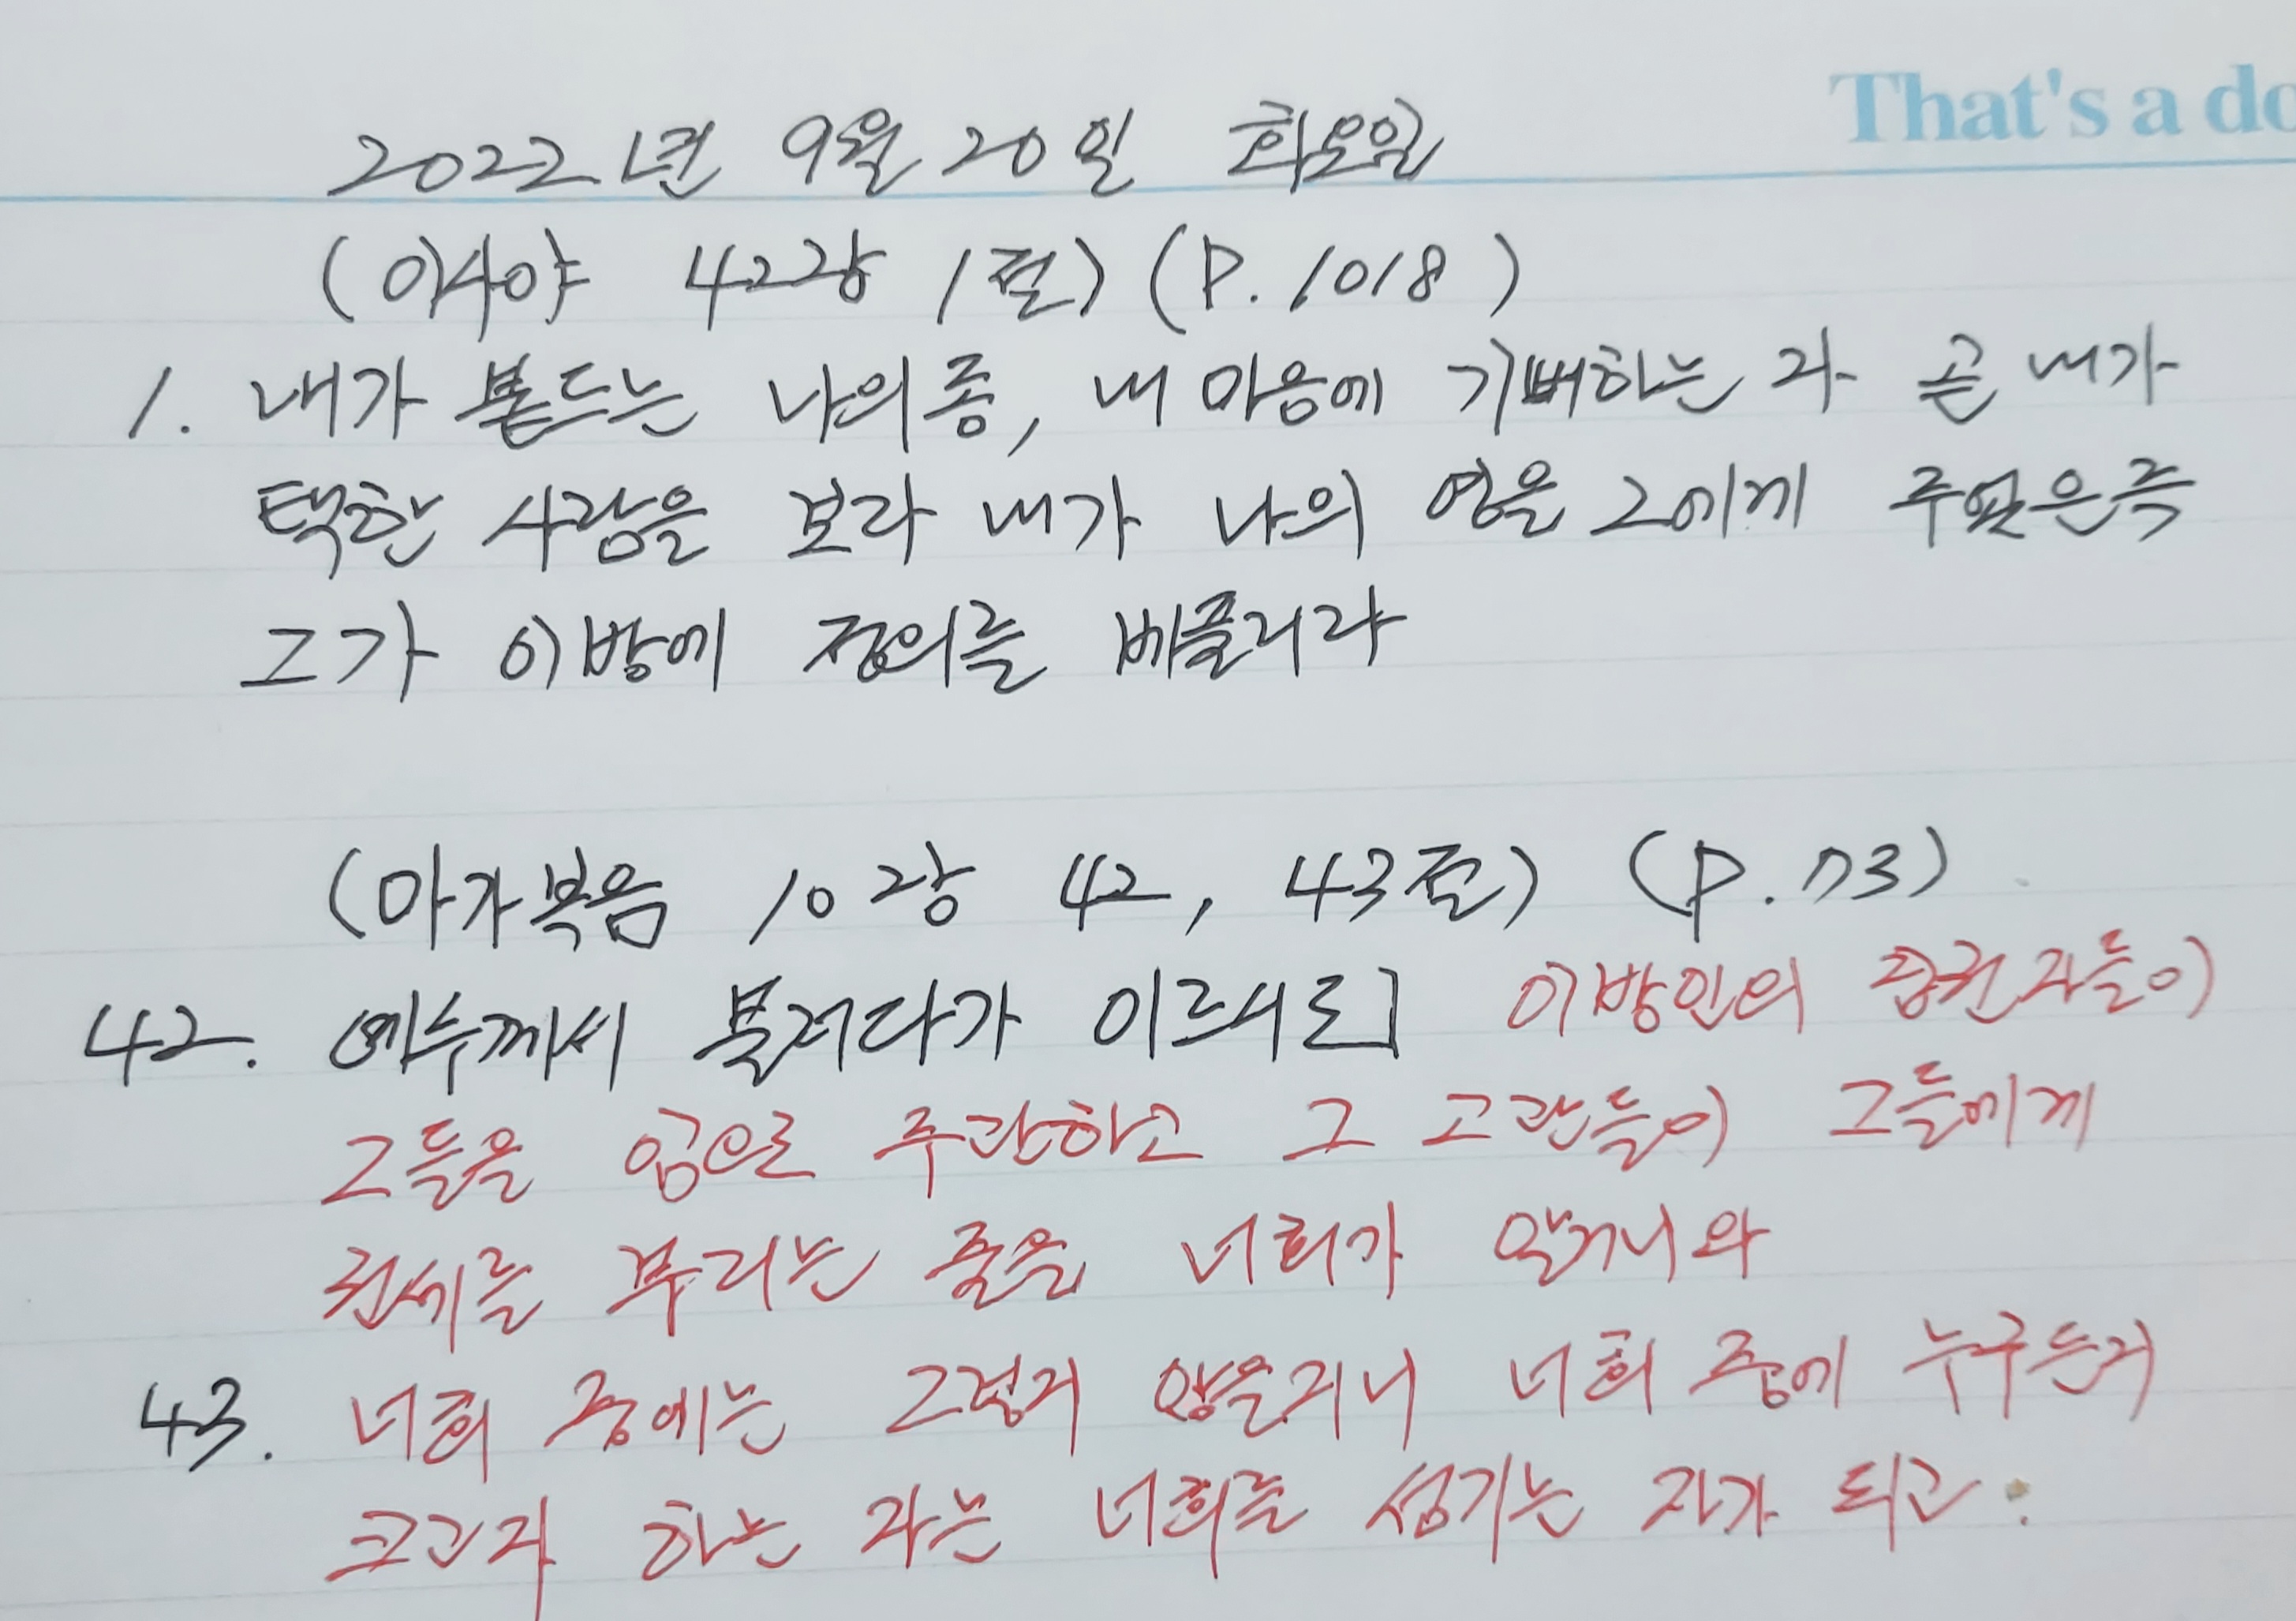 That's a do
2022년 9월 20일 화요일
(이사야 42장 1절) (P. 1018)
1. 내가 붙드는 나의 종, 내 마음에 기뻐하는 자 곧 내가
택한 사람을 보라 내가 나의 영을 그에게 주었은즉
그가 이방에 정의를 베풀리라
(마가복음 10장 42, 43절) (P. 73)
42. 예수께서 불러다가 이르시되 이방인의 집권자들이
그들을 임으로 주관하고 그 고관들이 그들에게
권세를 부리는 줄을 너희가 알거니와
43. 너희 중에는 그렇지 않을지니 너희 중에 누구든지
크고자 하는 자는 너희를 섬기는 자가 되고